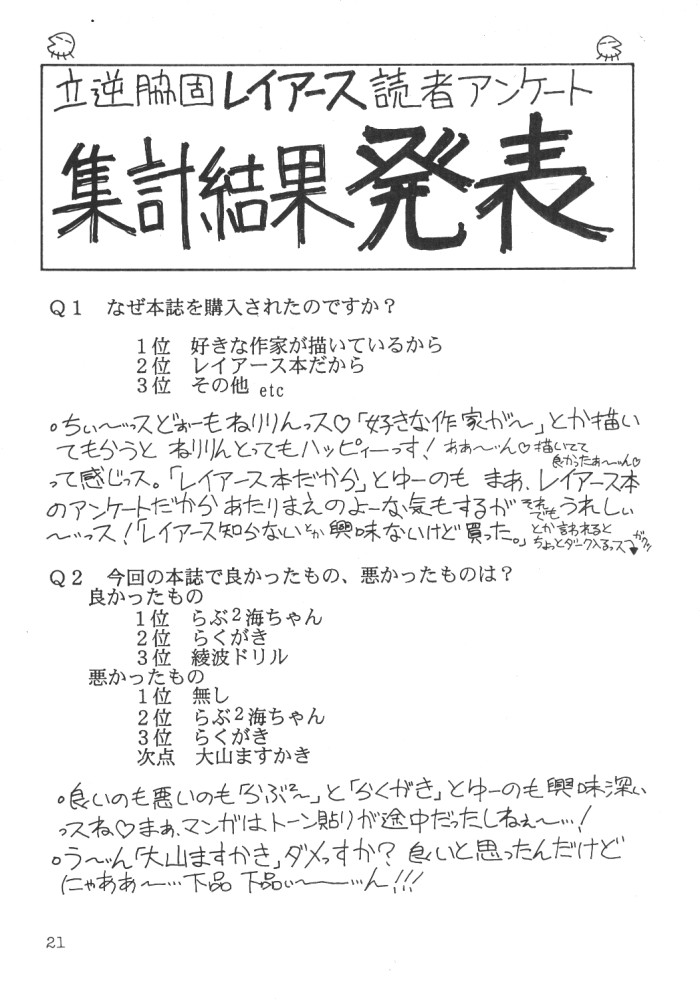 立逆脇固レイアース読者アンケート
集計結果発表
Q1 なぜ本誌を購入されたのですか?
1位 好きな作家が描いているから
2位 レイアース本だから
3位 その他 etc
○ちぃ～っスどぉーもねりりんっス♡「好きな作家が～」とか描い
てもらうと ねりりんとってもハッピィーっす! あぁ～ん♡描いてて
良かったぁ～ん♡
って感じっス。「レイアース本だから」とゆーのも まあ、レイアース本
のアンケートだから あたりまえのよーな気もするが それでも うれしい
～っス!「レイアース知らないとか興味ないけど買った。」とか言われると
ちょっとダーク入るっス ガクッ
Q2 今回の本誌で良かったもの、悪かったものは?
良かったもの
1位 らぶ2海ちゃん
2位 らくがき
3位 綾波ドリル
悪かったもの
1位 無し
2位 らぶ2海ちゃん
3位 らくがき
次点 大山ますかき
○良いのも悪いのも「らぶ2～」と「らくがき」とゆーのも興味深い
っスね♡まぁ、マンガはトーン貼りが途中だったしねぇ～…!
○う～ん「大山ますかき」ダメっすか? 良いと思ったんだけど
にゃああ～…下品 下品ぃ～…ん!!!
21